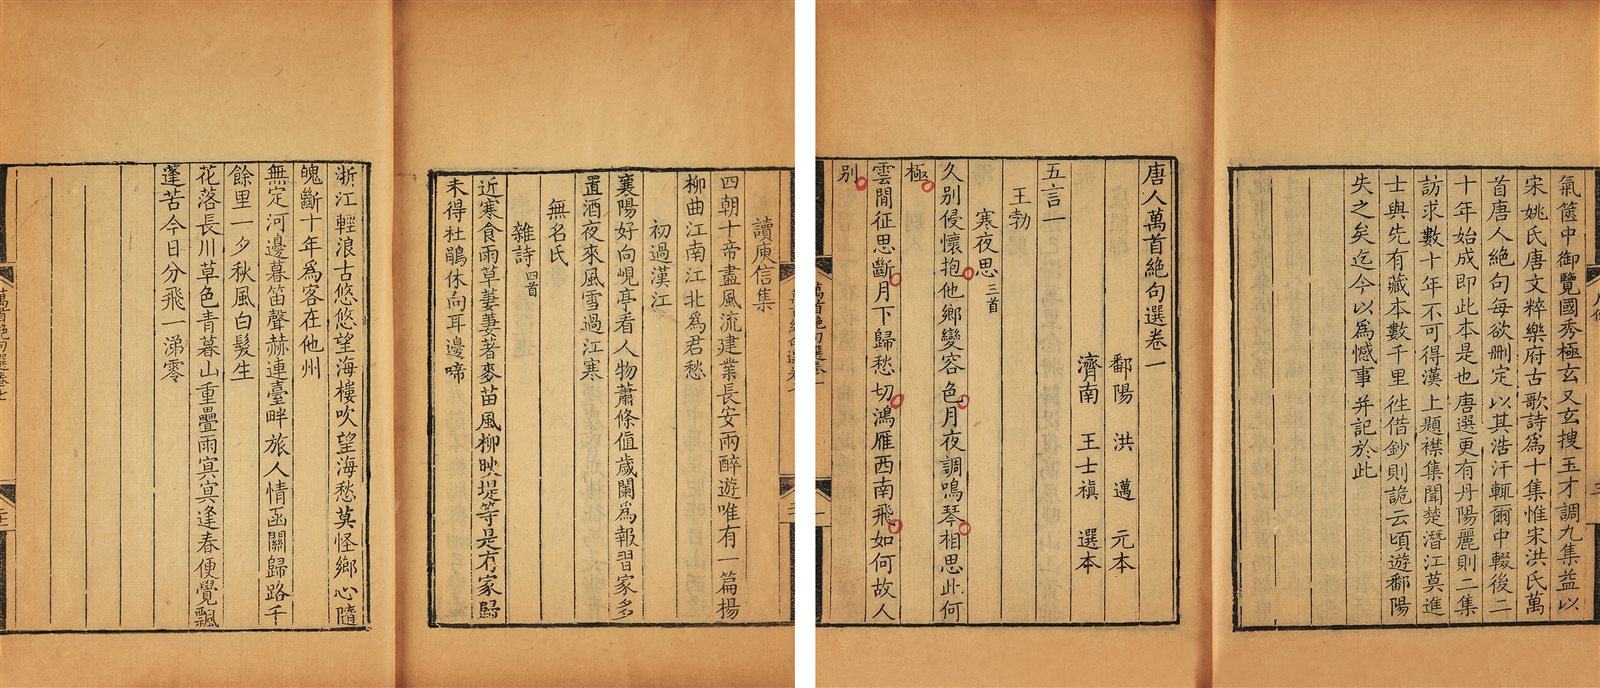 氣篋中御覽國秀極玄又玄搜玉才調九集益以
宋姚氏唐文粹樂府古歌詩為十集惟宋洪氏萬
首唐人絕句每欲刪定以其浩汗輒爾中輟後二
十年始成即此本是也唐選更有丹陽麗則二集
訪求數十年不可得漢上題襟集聞楚潛江莫進
士與先有藏本數千里徃借鈔則詭云頃遊鄱陽
失之矣迄今以為憾事并記於此
唐人萬首絕句選卷一
鄱陽 洪邁 元本
濟南 王士禛 選本
五言一
王勃
寒夜思三首
久別侵懷抱他鄉變容色月夜調鳴琴相思此何
極
雲間征思斷月下歸愁切鴻雁西南飛如何故人
別
萬首絕句選卷一
一
讀庾信集
四朝十帝盡風流建業長安兩醉遊唯有一篇楊
柳曲江南江北為君愁
初過漢江
襄陽好向峴亭看人物蕭條值歲闌為報習家多
置酒夜來風雪過江寒
無名氏
雜詩四首
近寒食雨草萋萋著麥苗風柳映堤等是有家歸
未得杜鵑休向耳邊啼
浙江輕浪古悠悠望海樓吹望海愁莫怪鄉心隨
魄斷十年為客在他州
無定河邊暮笛聲赫連臺畔旅人情函關歸路千
餘里一夕秋風白髮生
花落長川草色青暮山重疊雨冥冥逢春便覺飄
蓬苦今日分飛一涕零
萬首絕句選卷七